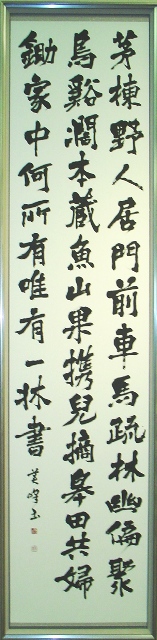 茅棟野人居門前車馬疏林幽偏聚
鳥谿濶本蔵魚山果携兒摘皋田共婦
鋤家中何所有唯有一牀書